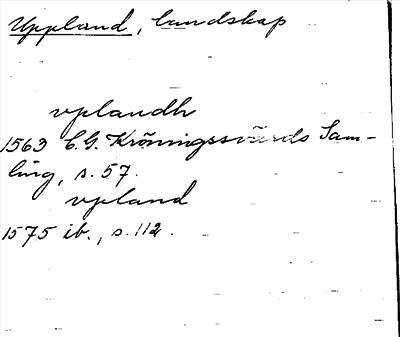 Uppland, landskap
vplandh
1563 C.G. Kröningssvärds Sam-
ling, s. 57.
vpland
1575 ib., s. 112.